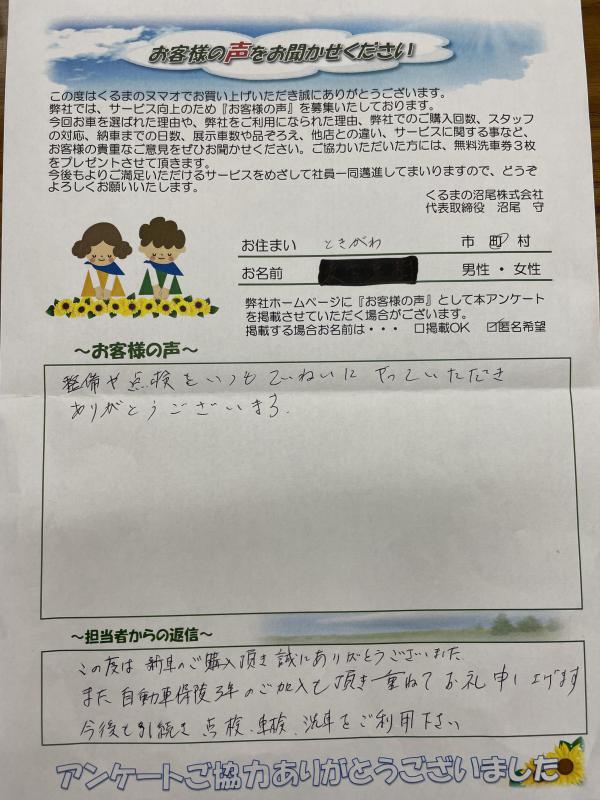 お客様の声をお聞かせください
この度はくるまのヌマオでお買い上げいただき誠にありがとうございます。
弊社では、サービス向上のため『お客様の声』を募集いたしております。
今回お車を選ばれた理由や、弊社をご利用になられた理由、弊社でのご購入回数、スタッフ
の対応、納車までの日数、展示車数や品ぞろえ、他店との違い、サービスに関する事など、
お客様の貴重なご意見をぜひお聞かせください。ご協力いただいた方には、無料洗車券3枚
をプレゼントさせて頂きます。
今後もよりご満足いただけるサービスをめざして社員一同邁進してまいりますので、どうぞ
よろしくお願いいたします。
くるまの沼尾株式会社
代表取締役 沼尾 守
お住まい ときがわ 市 町 村
お名前 男性・女性
弊社ホームページに『お客様の声』として本アンケート
を掲載させていただく場合がございます。
掲載する場合お名前は・・・ □掲載OK ☑匿名希望
～お客様の声～
整備や点検をいつもていねいにやっていただき
ありがとうございます.
～担当者からの返信～
この度は新車のご購入頂き誠にありがとうございました
また自動車保険3年のご加入も頂き重ねてお礼申し上げます
今後も引続き点検、車検、洗車をご利用下さい
アンケートご協力ありがとうございました